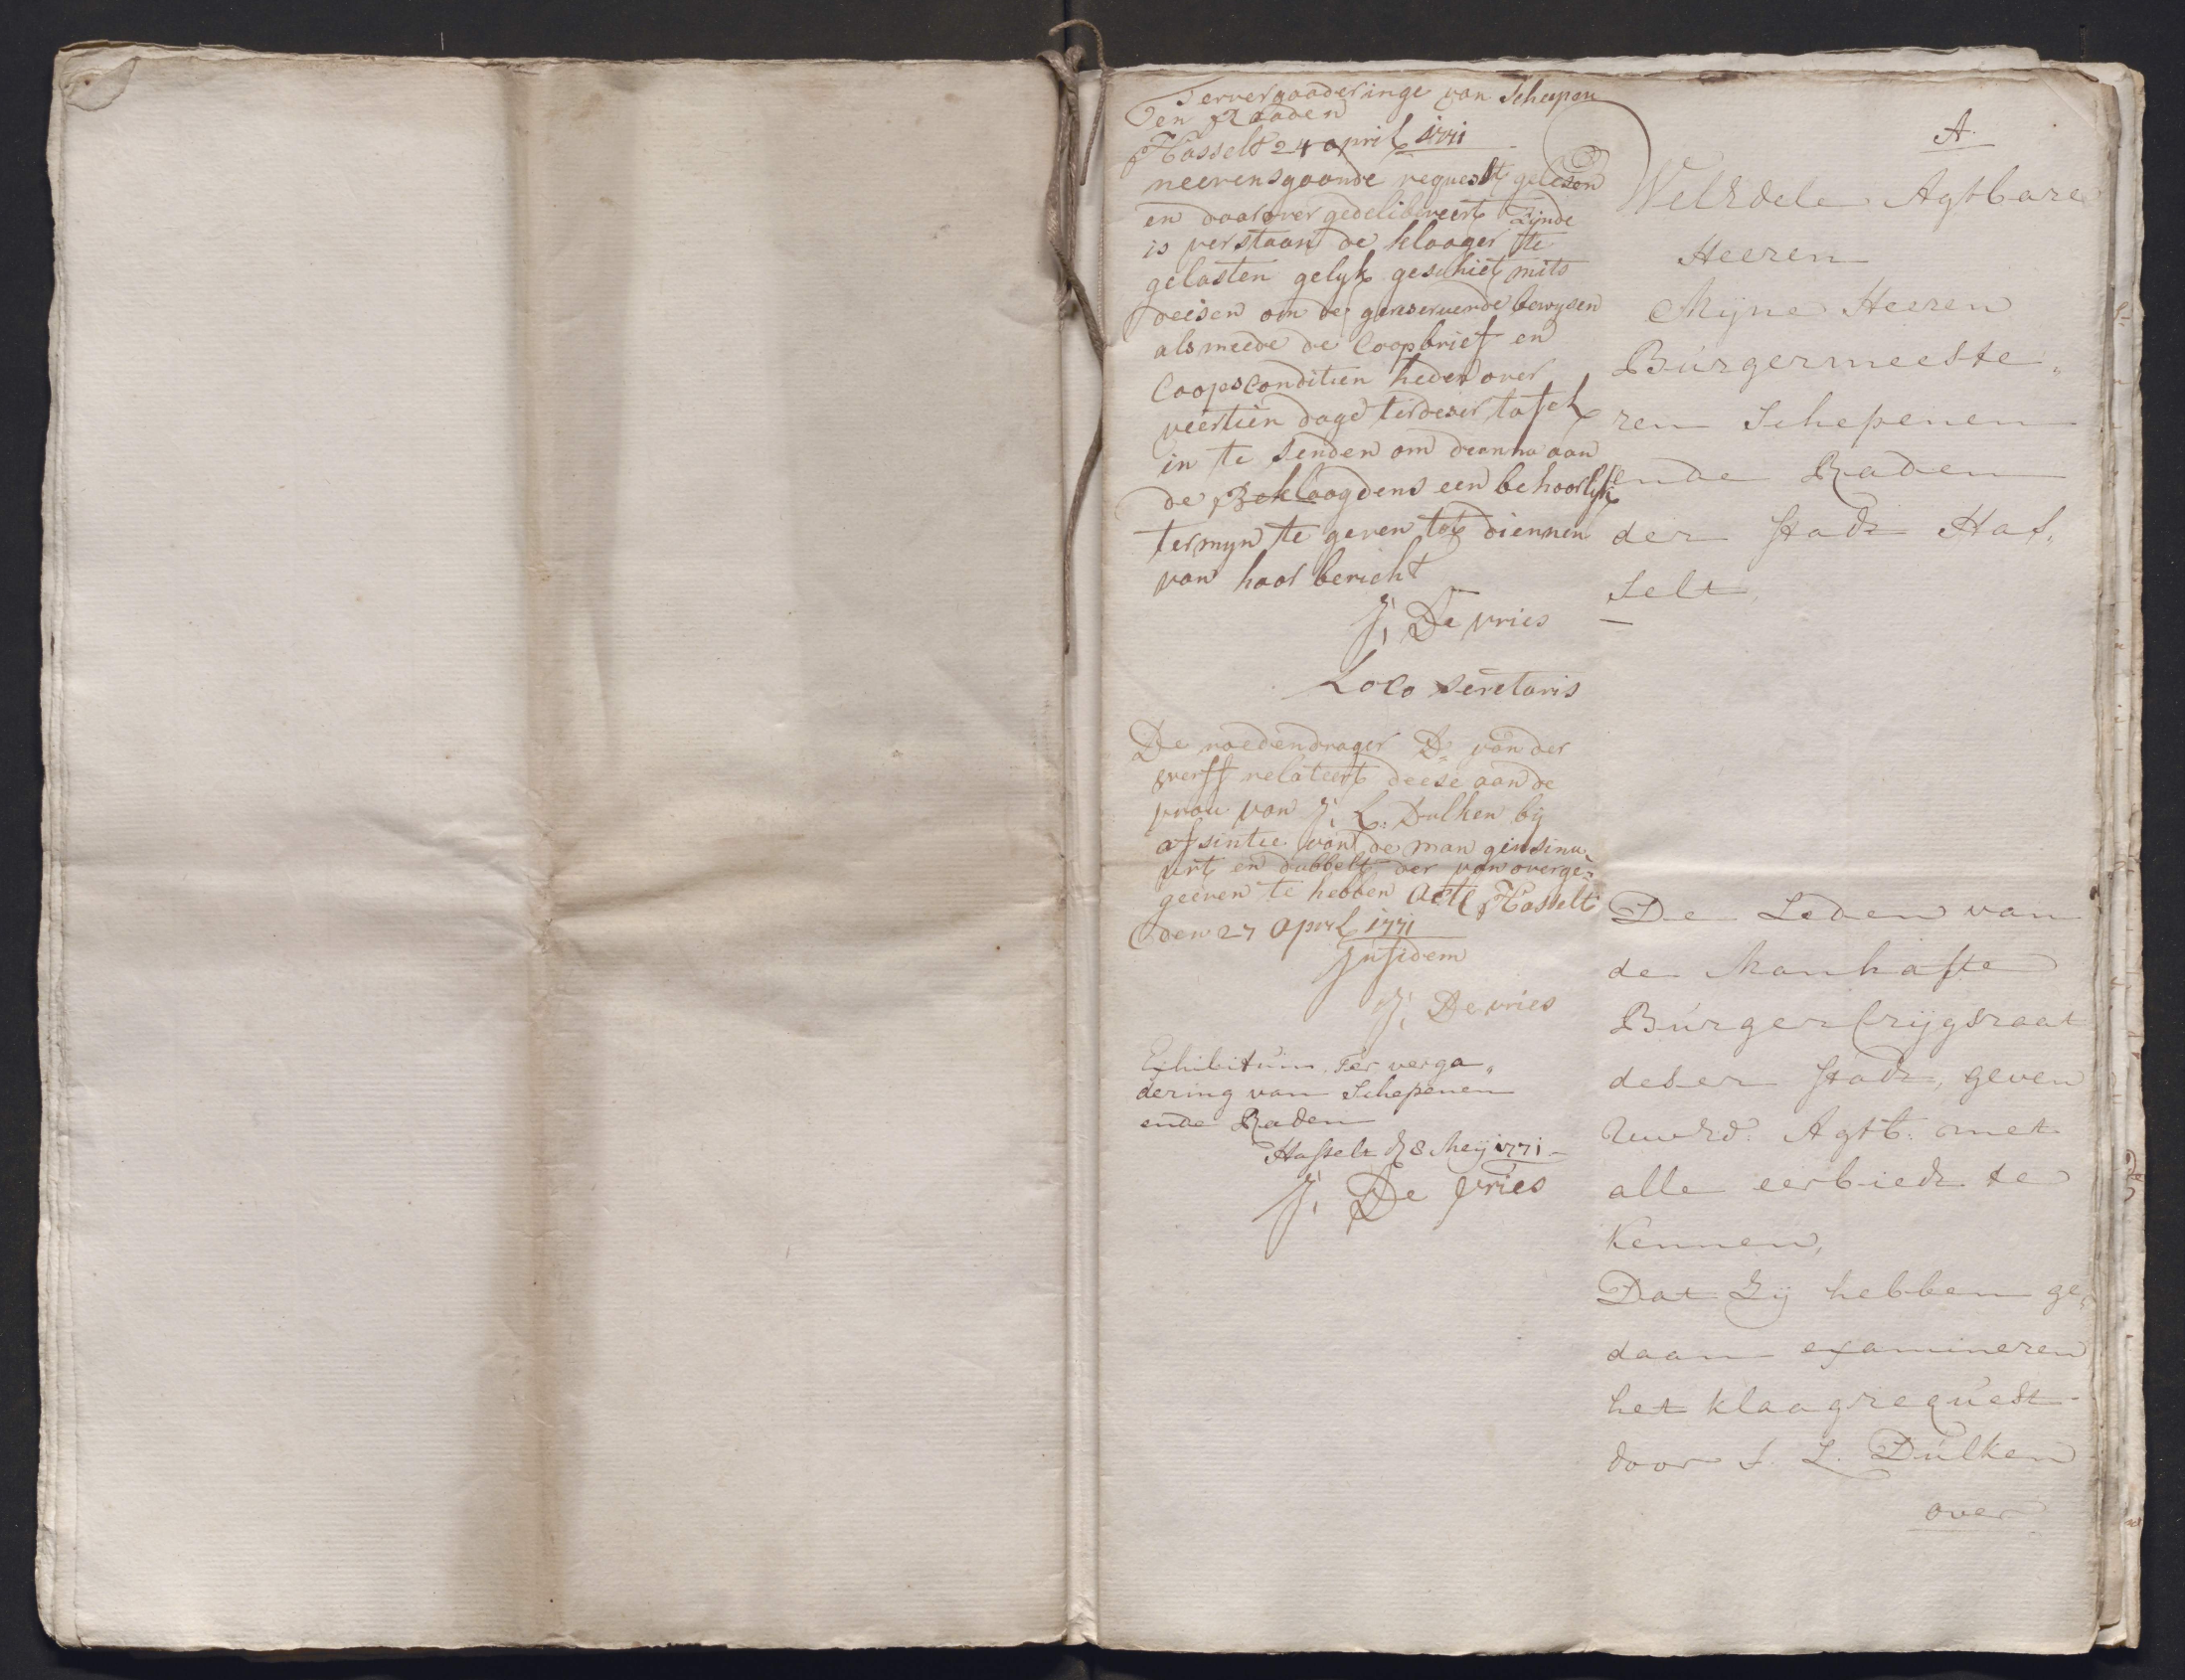 Ter vergaaderinge van Scheepen
en Raaden
Hasselt 24 april 1771
neevensgaande request gelesen
en daarover gedelibereert Zijnde
is verstaan de klaager te
gelasten gelyk geschiet mits
deesen om de gereserveerde bewysen
alsmeede de Coopbrief en
Coopsconditien heden over
veertien dage ter deser tafel
in te senden om daarna aan
de Beklaagdens een behoorlyk
termyn te geven tot diennen
van haar bericht
J. De vries
Loco Seretaris
De roedendrager D. van der
werff relateert deese aan de
vrou van J. L. Dulken bij
afsintie van de man geinsinu
eert en dubbelt der van overge=
geeven te hebben Acte Hasselt
den 27 April 1771
In fidem
J. De vries
Exhibitum Ter verga„
dering van Schepenen
ende Raden
Hasselt d 8 Meij 1771
J. De Vries
A.
WelEdele Agtbare
Heeren
Mijne Heeren
Burgermeeste„
ren Schepenen
ende Raden
der Stadt Has„
selt,
De Leden van
de Manhafte
Burger Crijgsraat
deser Stadt, geven
UwEd: Agtb: met
alle eerbiedt te
Kennen,
Dat Zij hebben ge„
daan examineren
het klaagrequest
door J. L. Dulken
over